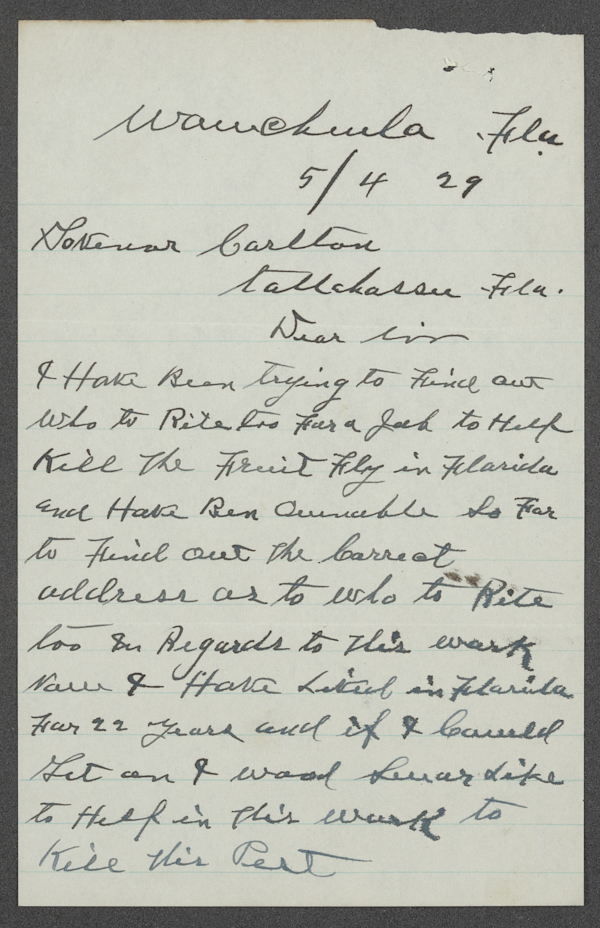 Wauchula Fla.
5/4 29
Govenor Carlton
tallehassee Fla.
Dear Sir
I Have Been trying to Find out
Who to Rite too For a Job to Help
Kill The Fruit Fly in Florida
and Have Ben Ounable So Far
to Find out The Correct
address as to who to Rite
too In Regards to This work
Now I Have Lived in Florida
For 22 years and if I Could
Get on I wood Like
to Help in This work to
Kill This Pest